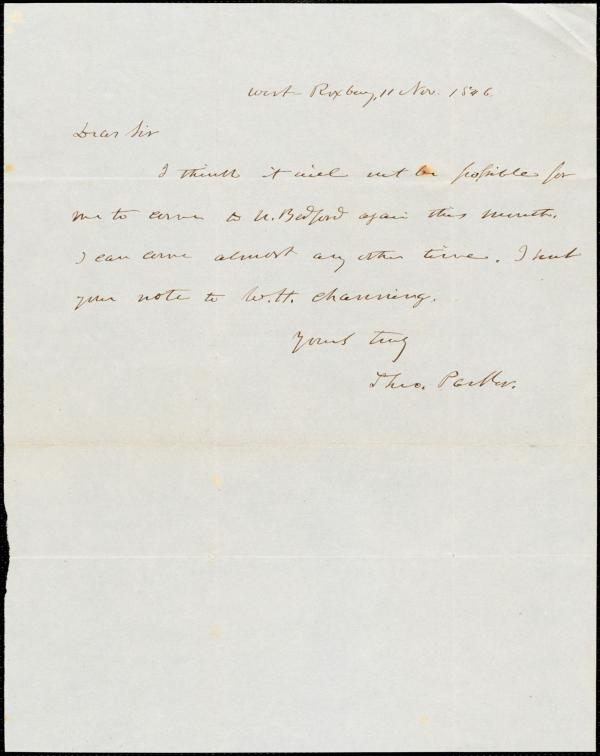 West Roxbury, 11 Nov. 1846.
Dear Sir
I think it will not be possible for
me to come to N. Bedford again this month.
I can come almost any other time. I sent
your note to W. H. Channing.
Yours truly
Theo. Parker.